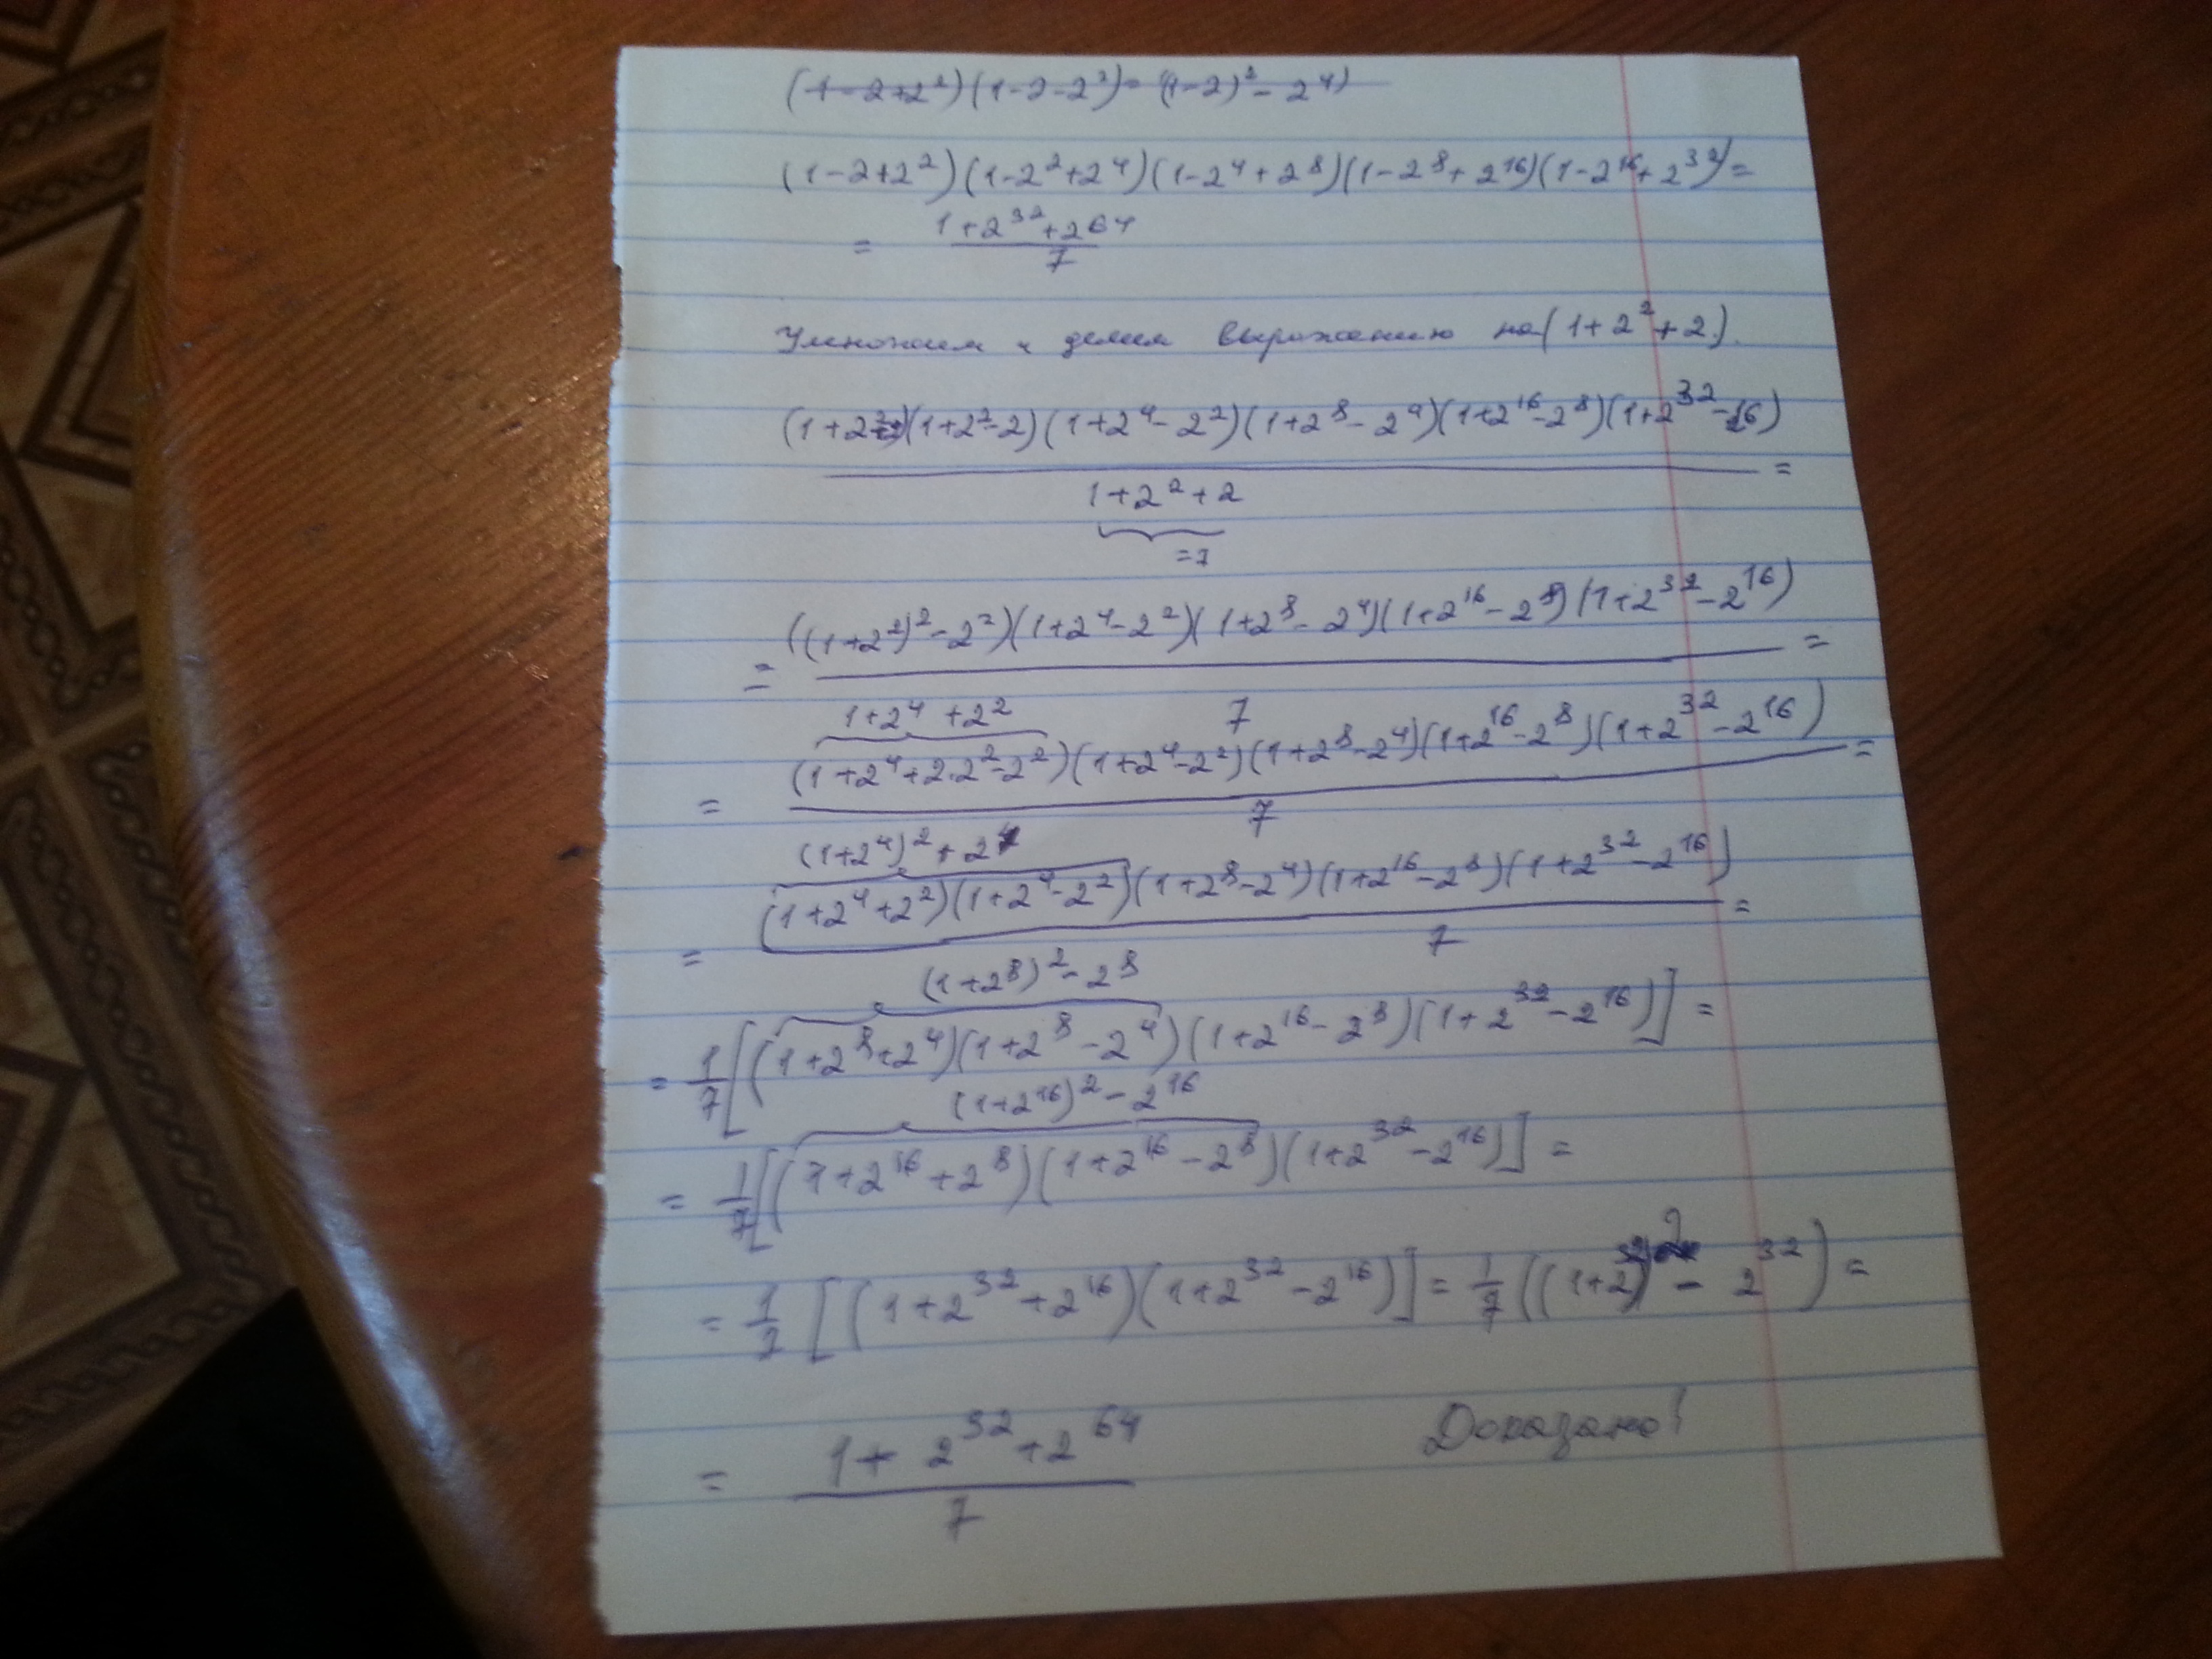 (1-2+2²)(1-2-2²)=(1-2)²-2⁴)
(1-2+2²)(1-2²+2⁴)(1-2⁴+2⁸)(1-2⁸+2¹⁶)(1-2¹⁶+2³²)=
= (1+2³²+2⁶⁴)/7
Умножим и делим выражению на (1+2²+2).
(1+2²+2)(1+2²-2)(1+2⁴-2²)(1+2⁸-2⁴)(1+2¹⁶-2⁸)(1+2³²-16) =
1+2²+2
=7
= ((1+2²)²-2²)(1+2⁴-2²)(1+2⁸-2⁴)(1+2¹⁶-2⁸)(1+2³²-2¹⁶) =
7
1+2⁴+2²
= (1+2⁴+2·2²-2²)(1+2⁴-2²)(1+2⁸-2⁴)(1+2¹⁶-2⁸)(1+2³²-2¹⁶) =
7
(1+2⁴)²+2⁴
= (1+2⁴+2²)(1+2⁴-2²)(1+2⁸-2⁴)(1+2¹⁶-2⁸)(1+2³²-2¹⁶) =
7
(1+2⁸)²-2⁸
= 1/7[(1+2⁸+2⁴)(1+2⁸-2⁴)(1+2¹⁶-2⁸)(1+2³²-2¹⁶)] =
(1+2¹⁶)²-2¹⁶
= 1/7[(1+2¹⁶+2⁸)(1+2¹⁶-2⁸)(1+2³²-2¹⁶)] =
= 1/7[(1+2³²+2¹⁶)(1+2³²-2¹⁶)] = 1/7((1+2³²)²-2³²) =
= (1+2³²+2⁶⁴)/7 Доказано!